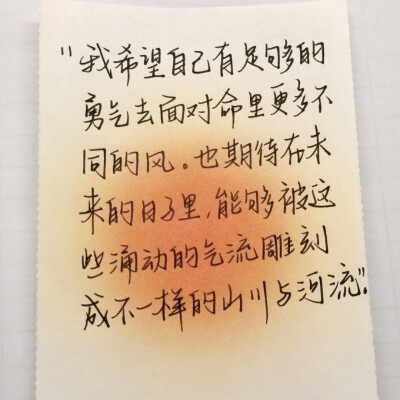 “我希望自己有足够的
勇气去面对命里更多不
同的风。也期待在未
来的日子里,能够被这
些涌动的气流雕刻
成不一样的山川与河流”。